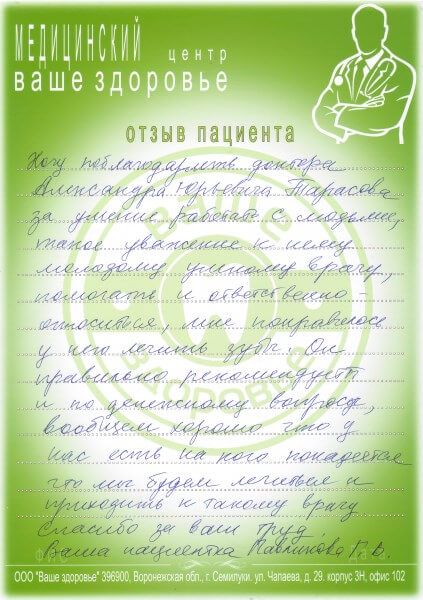 МЕДИЦИНСКИЙ центр
ваше здоровье
отзыв пациента
Хочу поблагодарить доктора
Александра Юрьевича Тарасова
за умение работать с людьми,
такое уважение к нему
молодому умному врачу,
помогать и ответственно
относиться, мне понравилось
у него лечить зубы. Он
правильно рекомендует
и по денежному вопросу,
вообщем хорошо что у
нас есть на кого понадеется
что мы будем лечиться и
приходить к такому врачу
спасибо за ваш труд.
Ваша пациентка Павлинова Г. В.
ООО "Ваше здоровье" 396900, Воронежская обл., г. Семилуки. ул. Чапаева, д. 29. корпус 3Н, офис 102